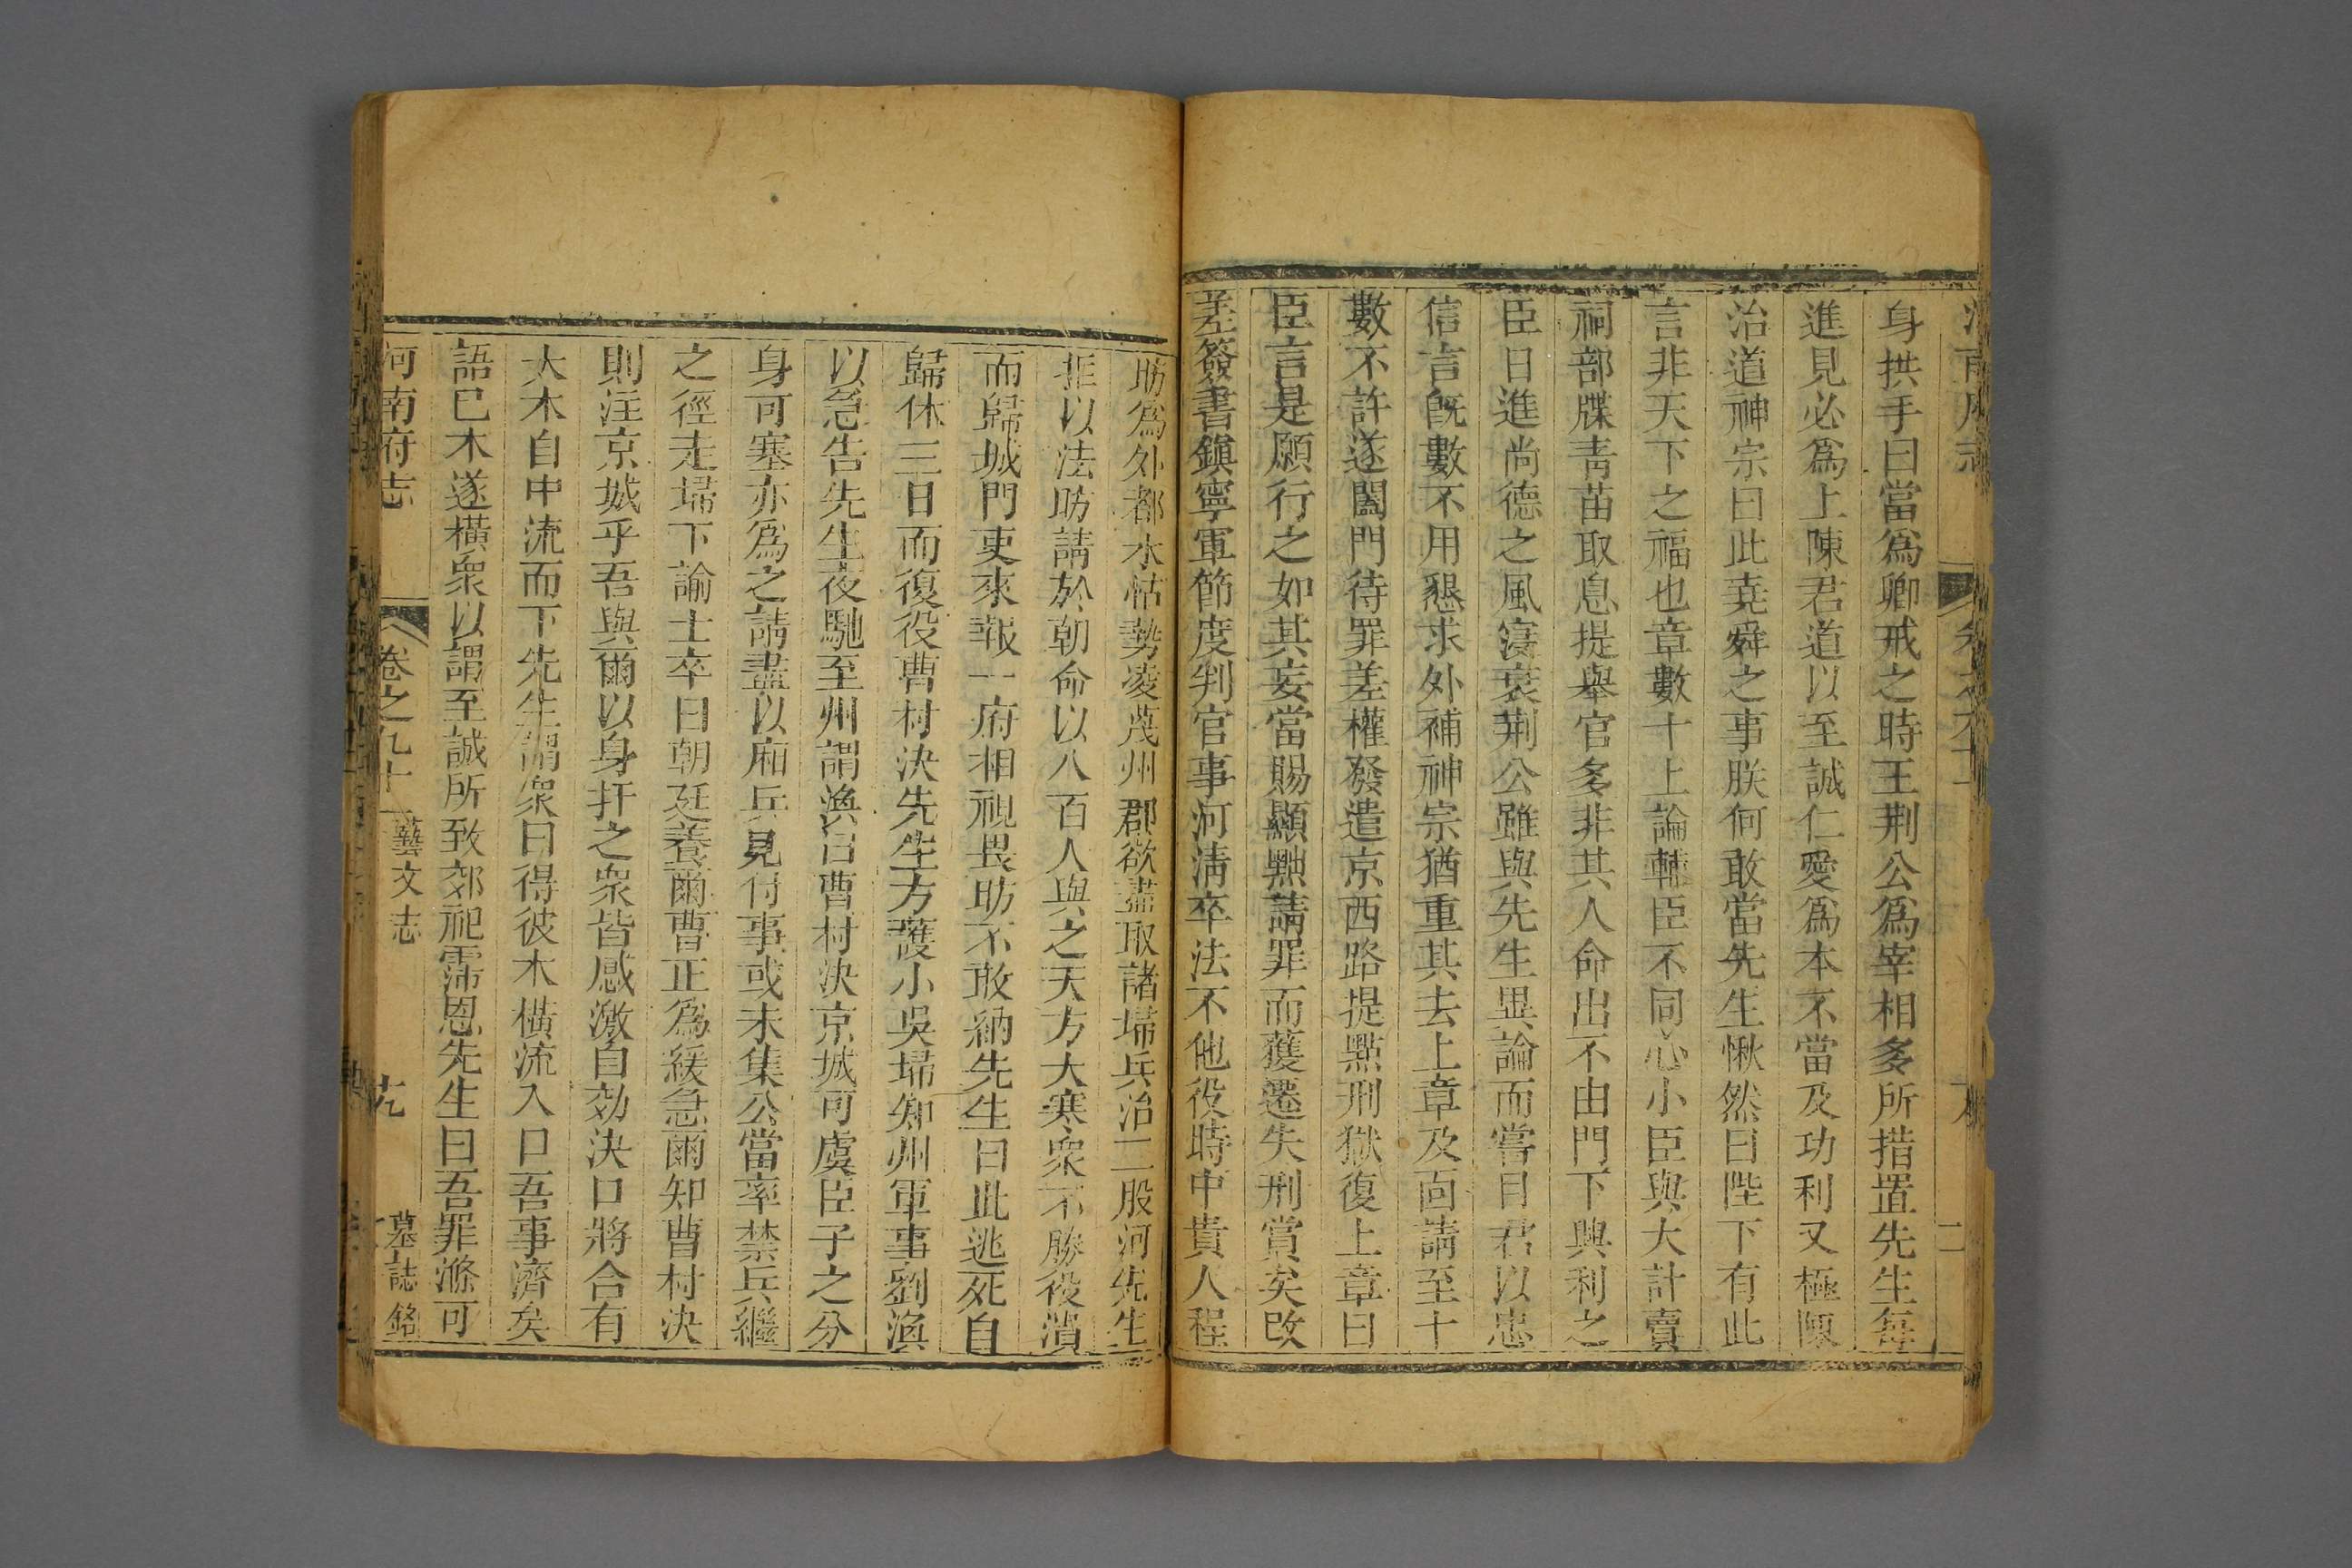 身拱手曰當爲卿戒之時王荆公爲宰相多所措置先生每
進見必爲上陳君道以至誠仁愛爲本不當及功利又極陳
治道神宗曰此堯舜之事朕何敢當先生愀然曰陛下有此
言非天下之福也章數十上論輔臣不同心小臣與大計賣
祠部牒靑苗取息提舉官多非其人命出不由門下興利之
臣日進尚德之風寖衰荆公雖與先生異論而嘗曰君以忠
信言旣數不用懇求外補神宗猶重其去上章及面請至十
數不許遂闔門待罪差權發遣京西路提點刑獄復上章曰
臣言是願行之如其妄當賜顯黜請罪而獲遷失刑賞矣改
差簽書鎭寧軍節度判官事河淸卒法不他役時中貴人程
昉爲外都水怙勢凌蔑州郡欲盡取諸埽兵治二股河先生
拒以法昉請於朝命以八百人與之天方大寒衆不勝役潰
而歸城門吏來報一府相視畏昉不敢納先生曰此逃死自
歸休三日而復役曹村決先生方護小吳埽知州軍事劉渙
以急告先生夜馳至州謂渙曰曹村決京城可虞臣子之分
身可塞亦爲之請盡以廂兵見付事或未集公當率禁兵繼
之徑走埽下諭士卒曰朝廷養爾曹正爲緩急爾知曹村決
則注京城乎吾與爾以身扞之衆皆感激自効決口將合有
大木自中流而下先生謂衆曰得彼木橫流入口吾事濟矣
語已木遂橫衆以謂至誠所致郊祀霈恩先生曰吾罪滌可
河南府志 卷之九十 藝文志 墓誌銘